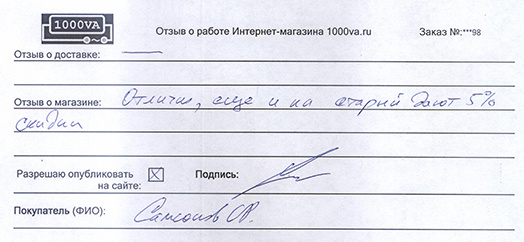 1000VA
Отзыв о работе Интернет-магазина 1000va.ru
Заказ №:***98
Отзыв о доставке:
Отзыв о магазине: Отлично, еще и на старый дают 5%
скидки
Разрешаю опубликовать
на сайте:
Подпись:
Покупатель (ФИО): Самсонов